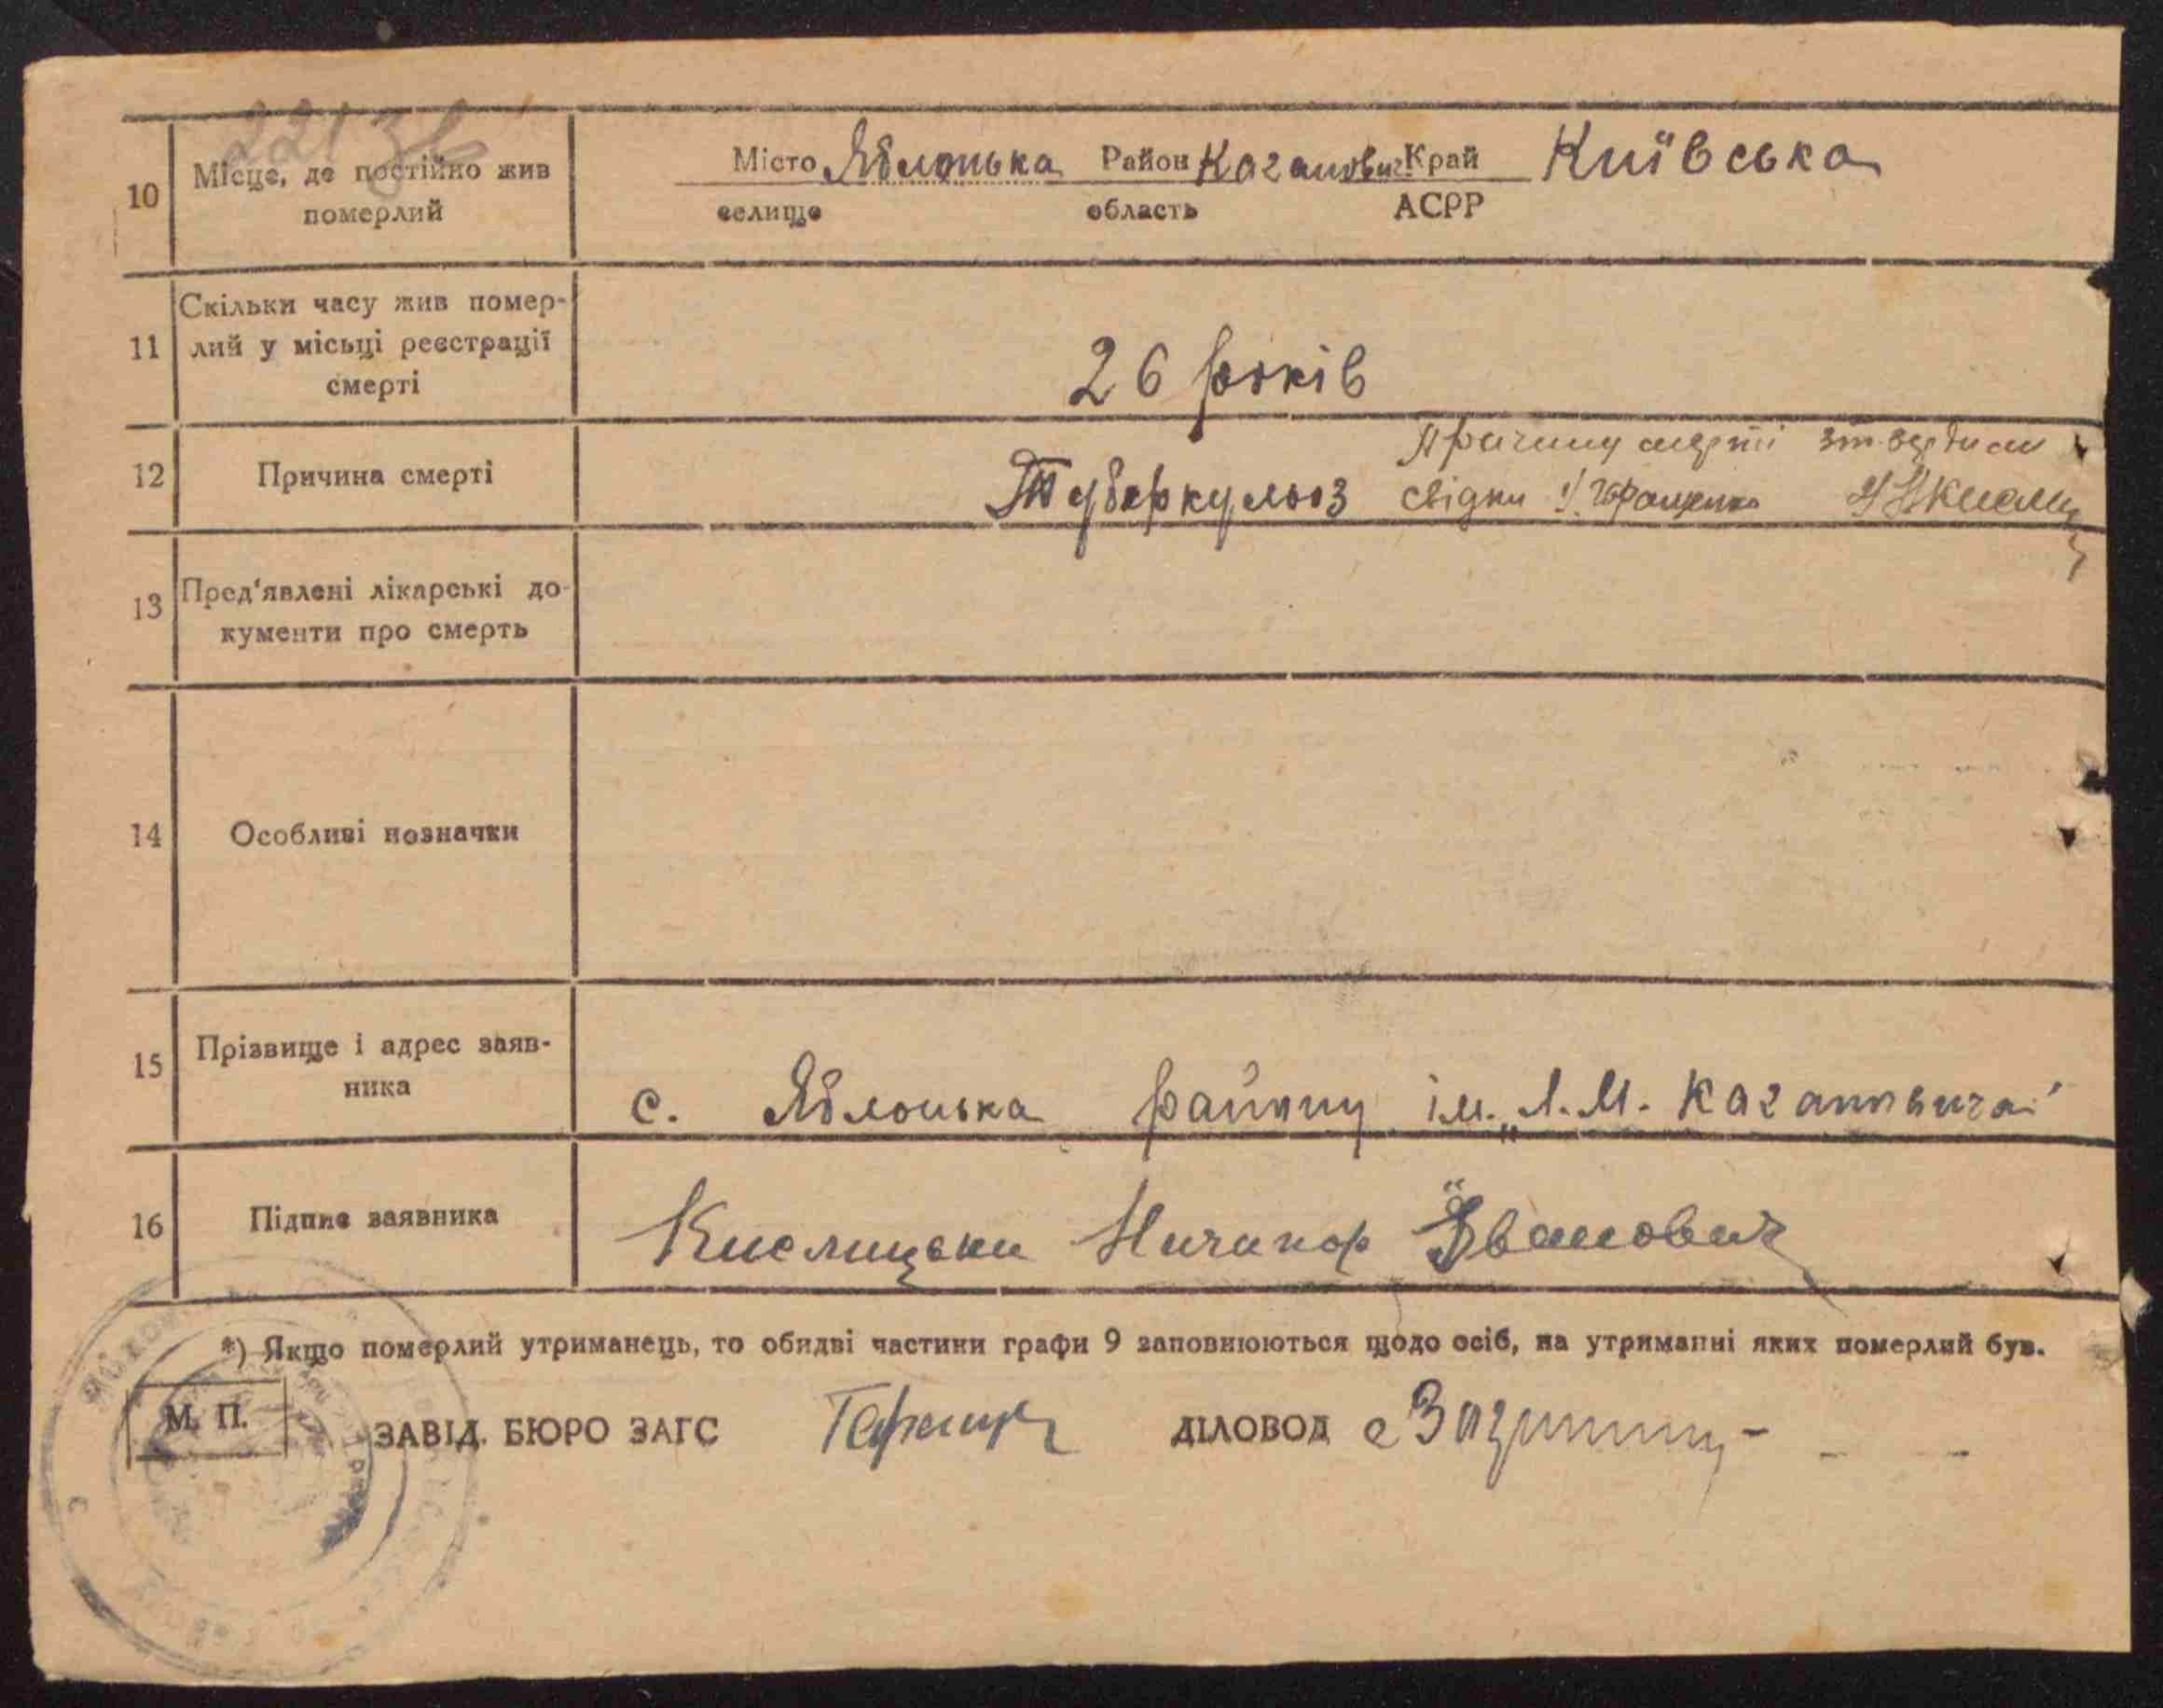 10 Місце, де постійно жив померлий Місто Яблонька Район Каганович. Край Київська
селище область АСРР
11 Скільки часу жив помер-
лий у місьці реєстрації
смерті
26 років
12 Причина смерті Туберкульоз
Причину смерті зтвердили
свідки 1/
13 Пред'явлені лікарські до-
кументи про смерть
14 Особливі позначки
15 Прізвище і адрес заяв-
ника
с. Яблонька району ім. „Л. М. Кагановича"
16 Підпис заявника Кислицьки Ничипор Іванович
*) Якщо померлий утриманець, то обидві частини графи 9 заповнюються щодо осіб, на утриманні яких померлий був.
М. П. ЗАВІД. БЮРО ЗАГС ДІЛОВОД